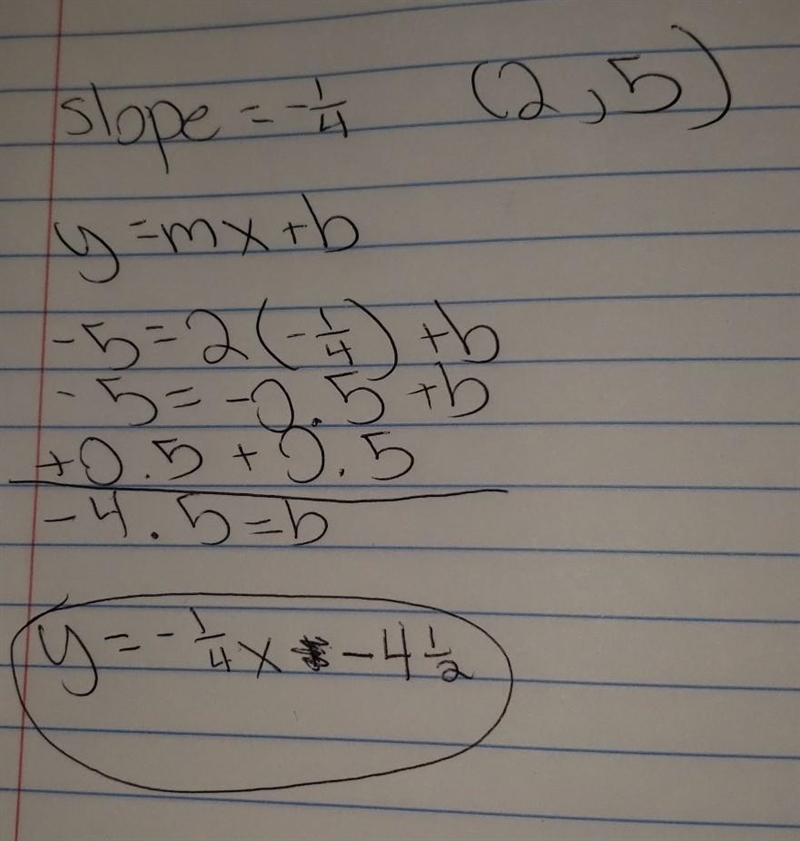 slope = -1/4 (2,5)
y=mx+b
-5=2(-1/4)+b
-5=-0.5+b
+0.5 +0.5
-4.5=b
y=-1/4x -4 1/2